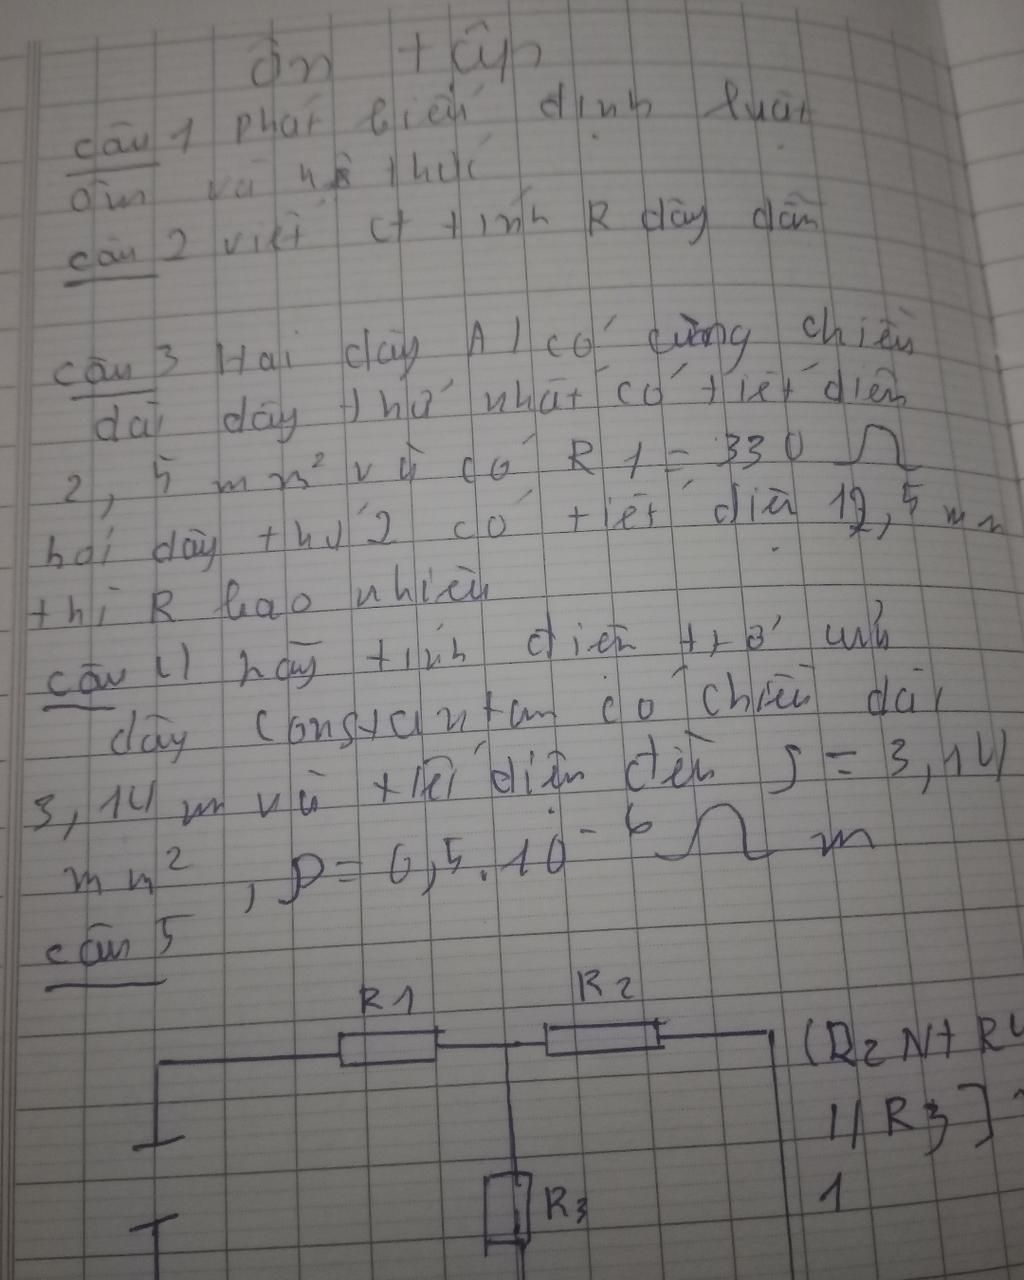 ôn tập
câu 1 phát biểu định luật
ôm và hệ thức
câu 2 viết ct tính R dây dẫn
câu 3 Hai dây Al có cùng chiều
dài dây thứ nhất có tiết diện
2,5 mm² và có R1 = 330 Ω
hỏi dây thứ 2 có tiết diện 12,5 mm
thì R bao nhiêu
câu 4 hãy tính điện trở của
dây constantan có chiều dài
3,14 m và tiết diện đều S = 3,14
mm², ρ = 0,5.10⁻⁶ Ω m
câu 5
R1 R2
(R2 Nt R4
// R3]
R3 1